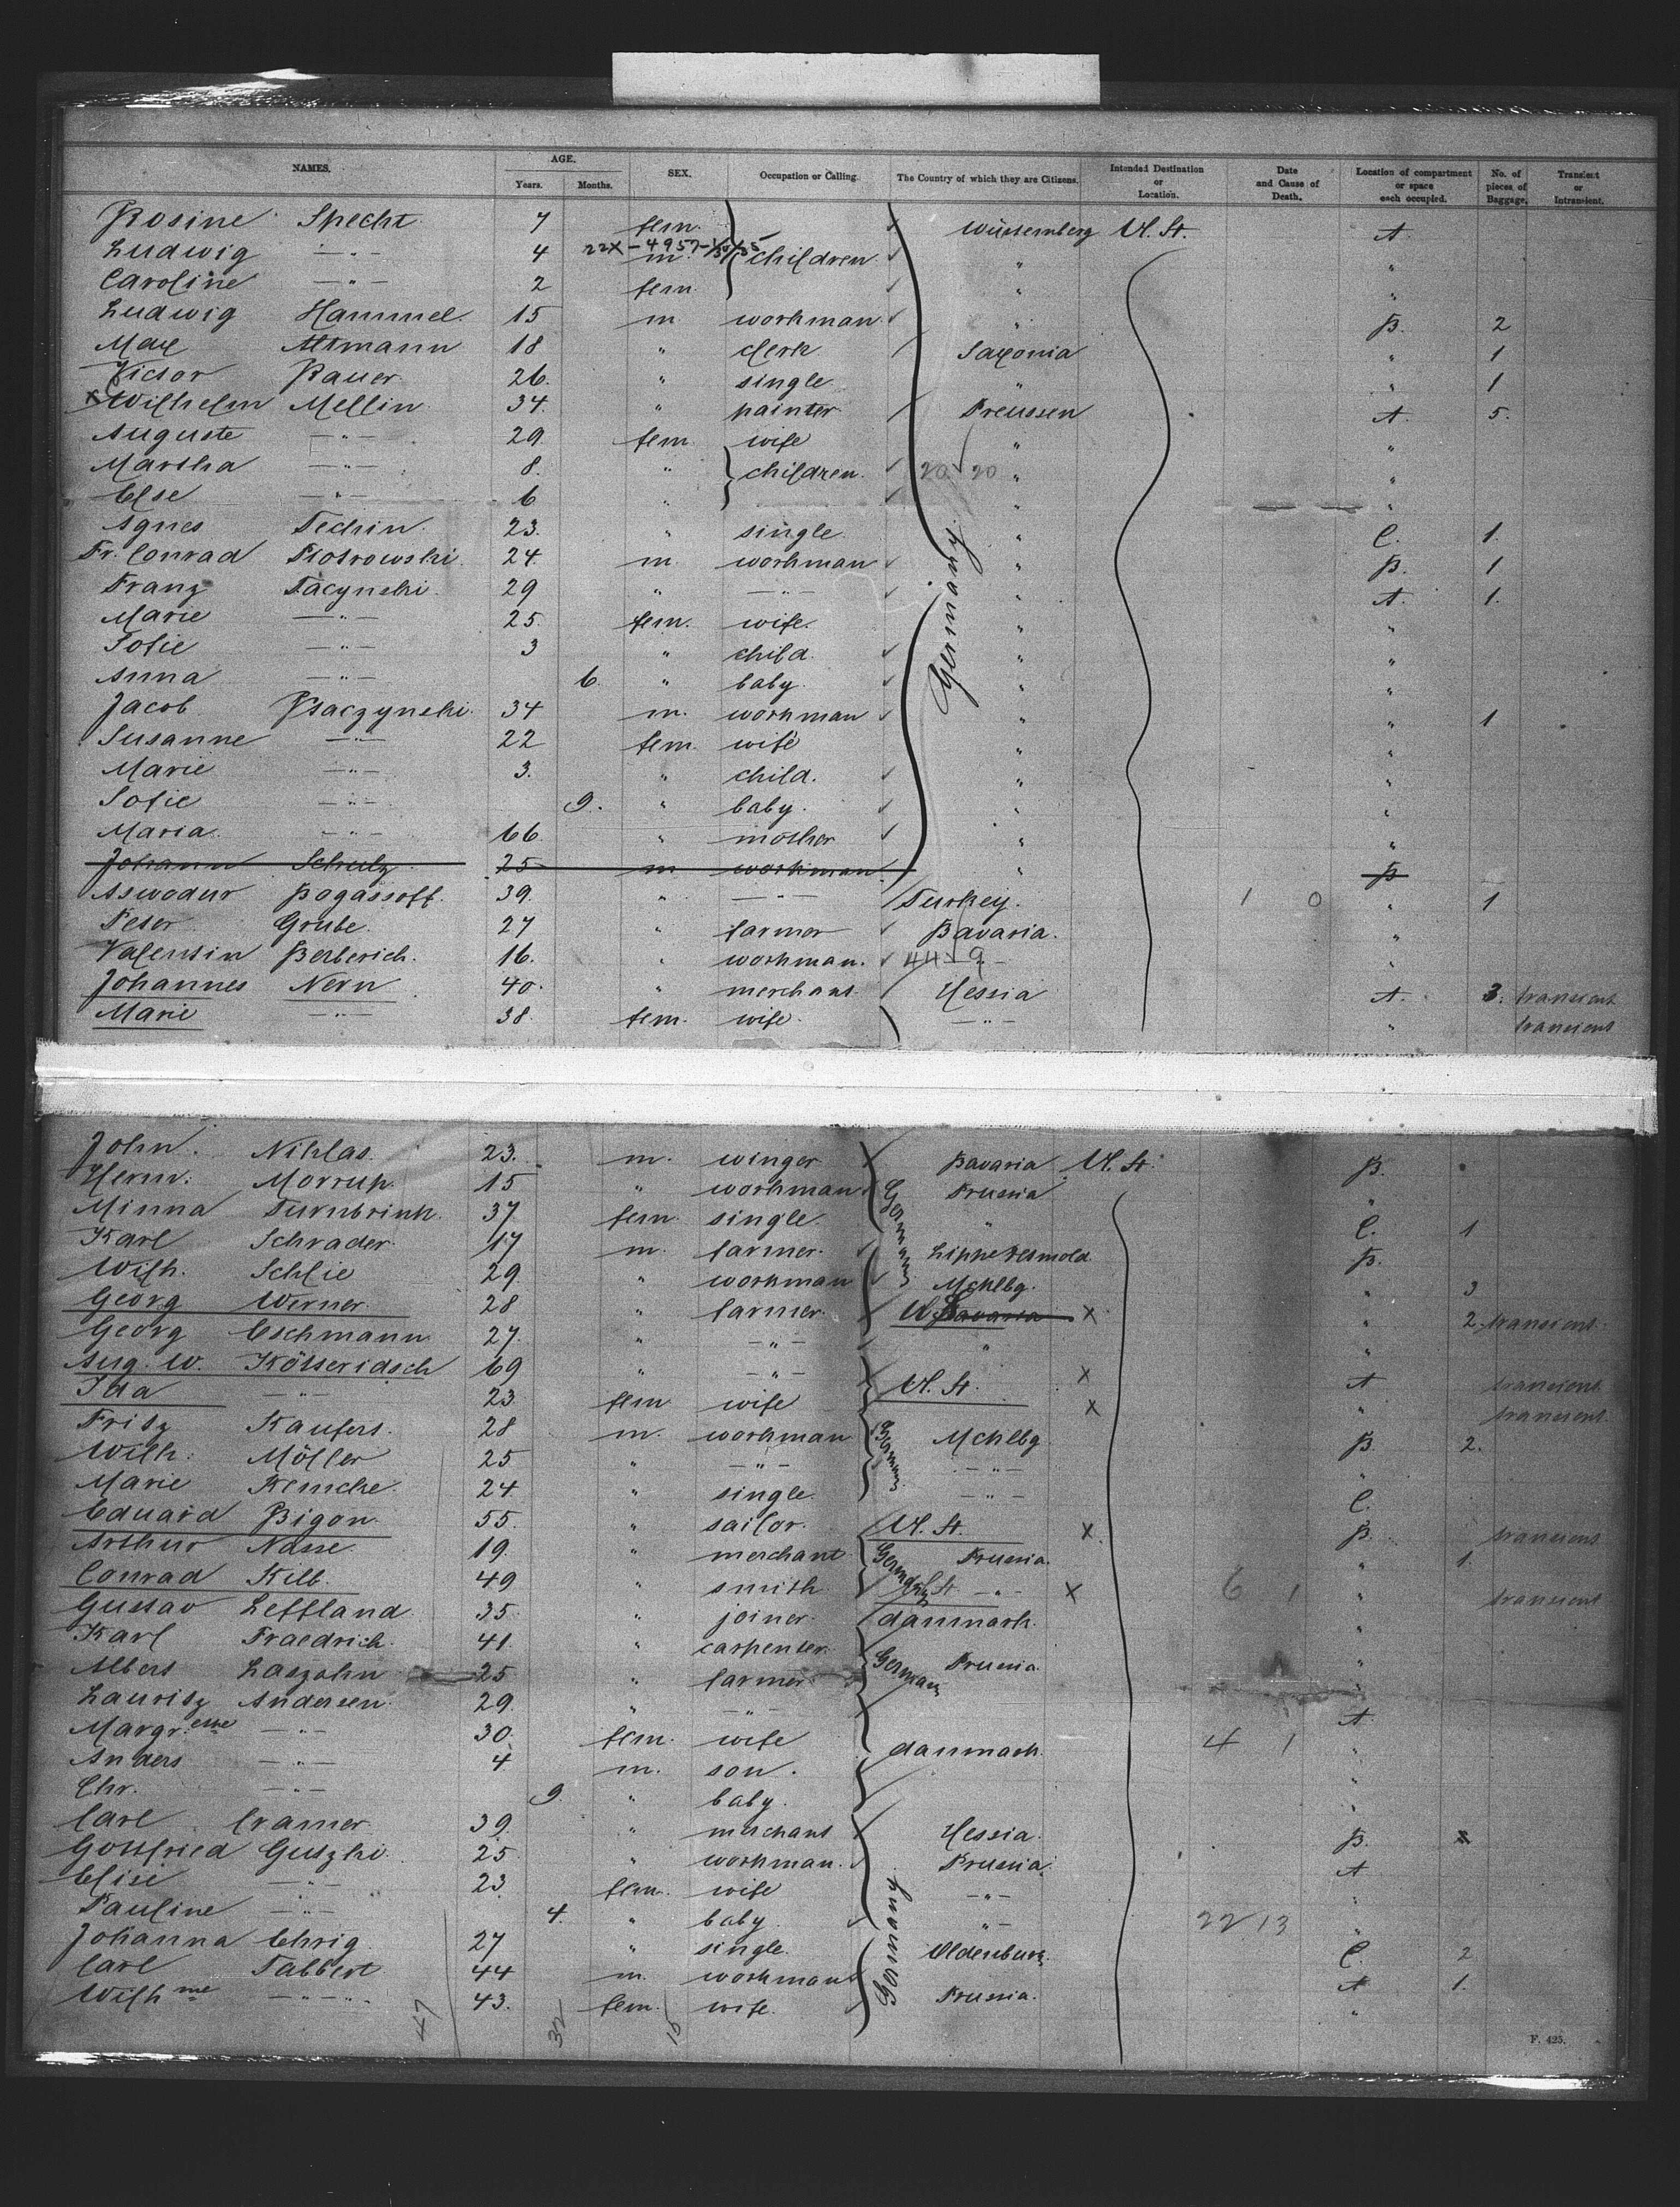 NAMES. AGE. Years. Months. SEX. Occupation or Calling. The Country of which they are Citizens. Intended Destination or Location. Date and Cause of Death. Location of compartment or space each occupied. No. of pieces of Baggage. Transient or Intransient.
Rosine Specht 7 fem. Württemberg U. St. A.
Ludwig —"— 4 22X-4957- m. children " "
Caroline —"— 2 fem. " "
Ludwig Hammel. 15 m workman " B. 2
Max Altmann 18 " clerk Saxonia " 1
Victor Bauer. 26. " single " " 1
X Wilhelm Mellin. 34. " painter Preussen A. 5.
Auguste —"— 29. fem. wife " "
Martha —"— 8. " children. 20 20 " "
Else —"— 6 " "
Agnes Techin. 23. " single " C. 1.
Fr. Conrad Piotrowski. 24. m. workman " B. 1
Franz Tacynski. 29 " —"— " A. 1.
Marie —"— 25. fem. wife. " "
Sofie —"— 3 " child. " "
Anna —"— 6. " baby. " "
Germany.
Jacob Psaczynski. 34 m. workman " " 1
Susanne —"— 22 fem. wife " "
Marie —"— 3. " child. " "
Sofie —"— 9. " baby. " "
Maria. —"— 66. " mother " "
Johann Schulz. 25 m workman. " B
Aswodur Bogassoff. 39. " —"— Turkey. 1 0 " 1
Peter Grube. 27 " farmer Bavaria. "
Valentin Berberich. 16. " workman. 44 9 "
Johannes Nern 40. " merchant Hessia A. 3. transient
Marie —"— 38. fem. wife. —"— " transient
John. Niklas. 23. m. winger Bavaria U. St. B.
Herm. Morrup. 15 " workman Prussia "
Minna Turnbrink. 37. fem. single. " C. 1
Karl Schrader. 17 m. farmer. Lippe Detmold B.
Germany
Wilh. Schlie 29. " workman Mcklbg. " 3
Georg Werner. 28 " farmer. U Bavaria X " 2. transient.
Georg Eschmann 27. " —"— " "
Aug. W. Kötteridsch 69 " —"— U. St. X A transient.
Ida —"— 23. fem wife X " transient.
Fritz Kaufers. 28 m. workman Mcklbg B. 2.
Germany
Wilh. Möller 25 " —"— —"— "
Marie Kemcke. 24 " single —"— C.
Eduard Bigon. 55. " sailor. U. St. X B. transient
Arthur Nasse. 19. " merchant Germany Prussia. " 1.
Conrad Kilb. 49 " smith U. St. —"— X 6 1 " transient
Gustav Leffland. 35. " joiner. danmark. "
Karl Fraedrich. 41. " carpenter. Germany Prussia. "
Albert Laszahn 25 " farmer "
Lauritz Andersen. 29. " —"— A.
Margr.ethe —"— 30. fem. wife danmark. 4 1 "
Anders —"— 4 m. son. "
Chr. —"— 9. " baby. "
Carl Cramer. 39. " merchant Hessia. B.
Gottfried Guszki. 25. " workman. Prussia. A
Elise —"— 23. fem. wife —"— "
Pauline —"— 4. " baby. "— 22 13 "
Germany
Johanna Ehrig. 27 " single. Oldenburg. C. 2
Carl Tabbert. 44 m. workman A 1.
Wilhme —"—"— 43. fem. wife. Prussia. "
47 32 15
F. 425.